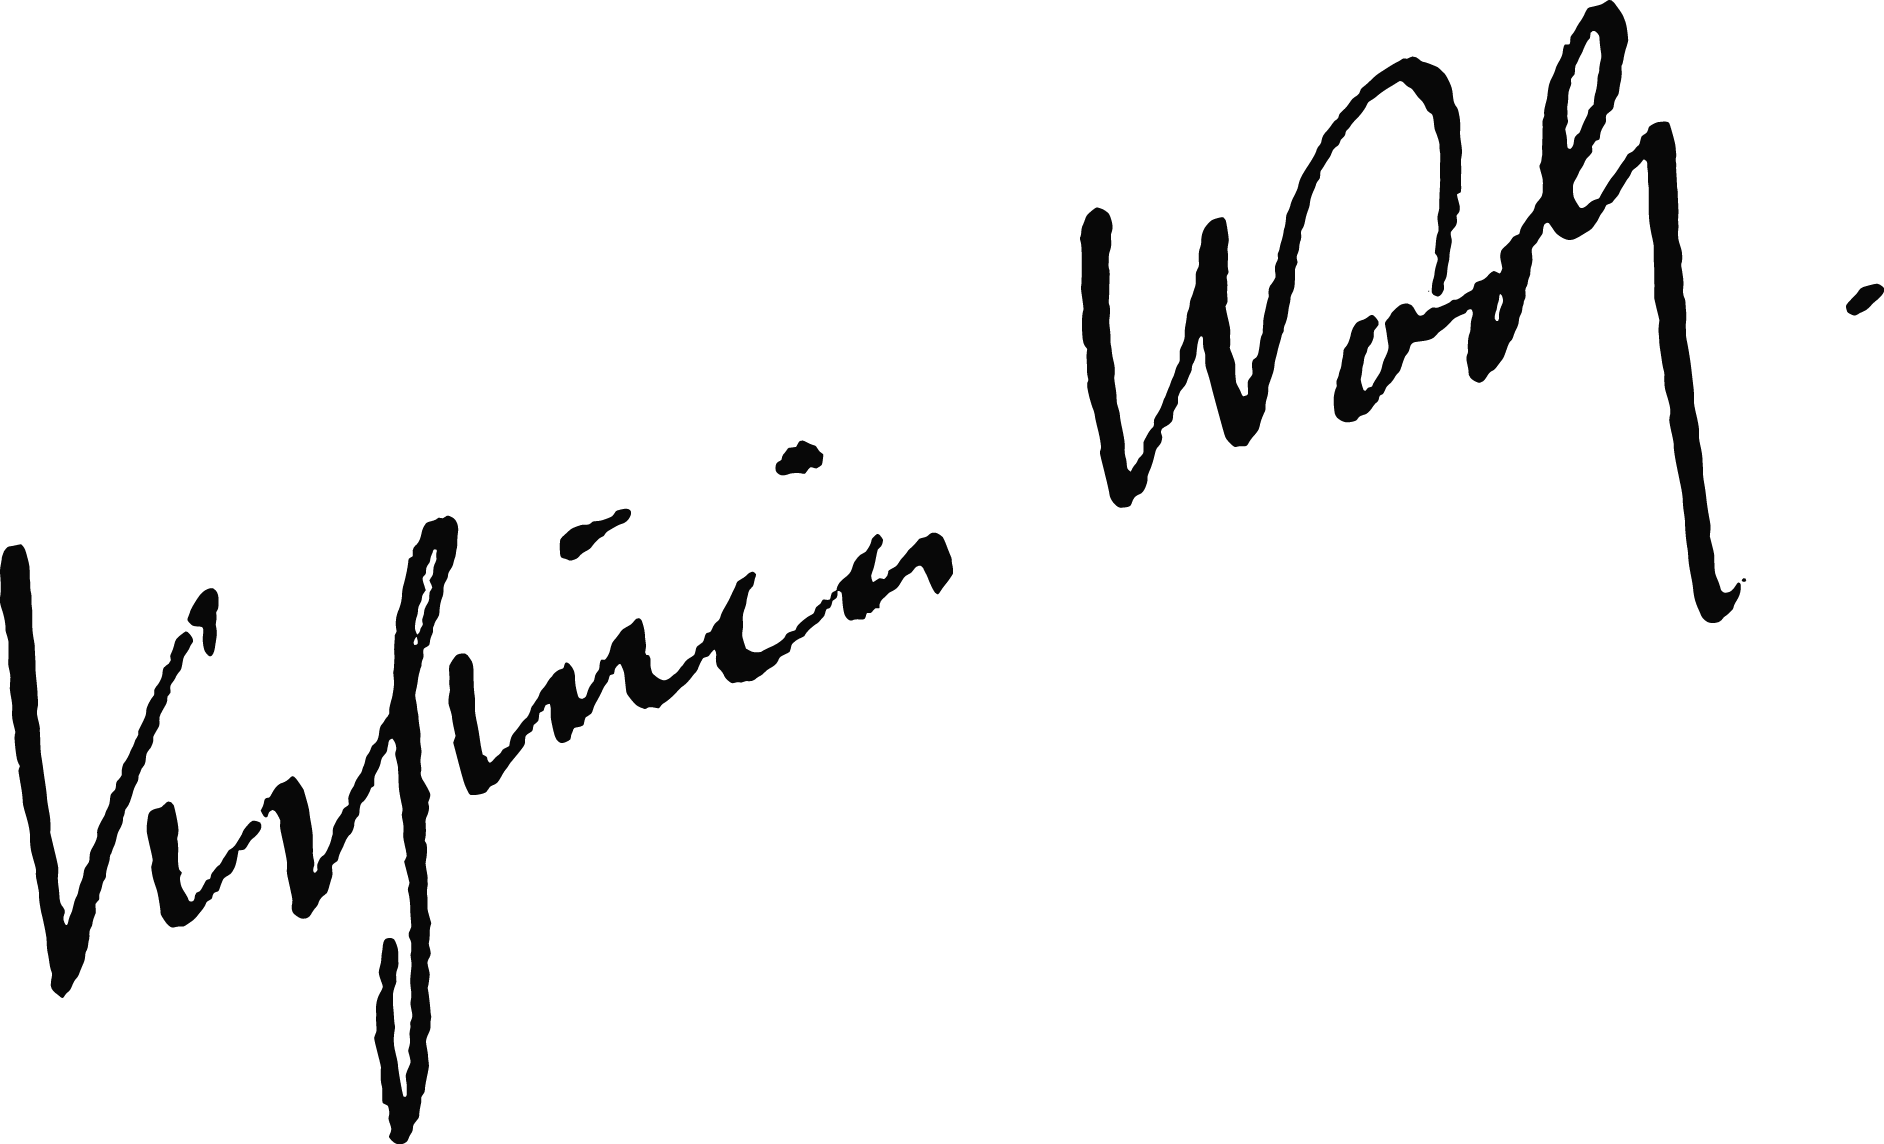 Virginia Woolf.